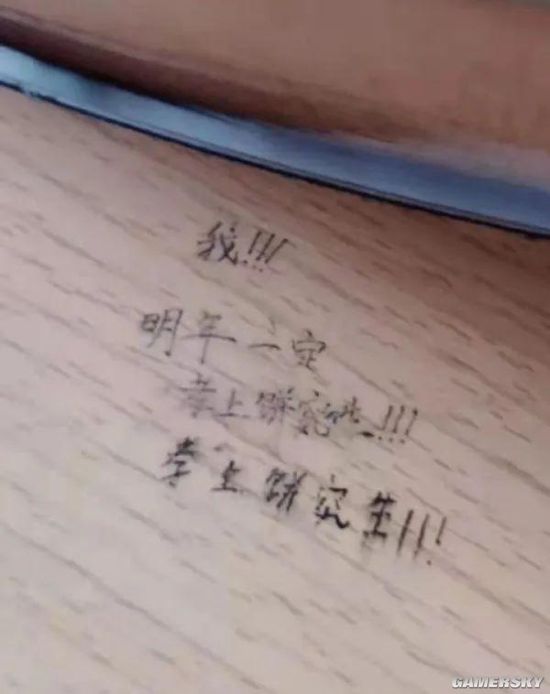 我!!!!
明年一定
孝上饼究生!!!
孝上饼究生!!!
GAMERSKY